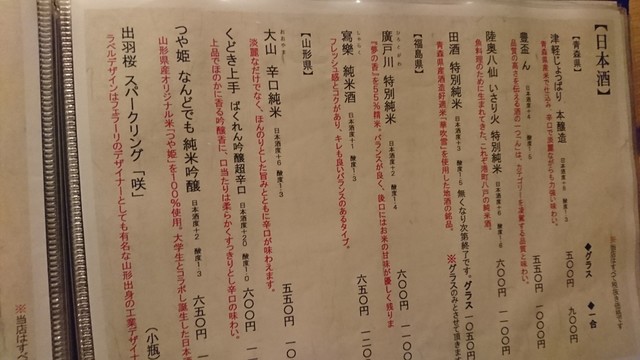 【日本酒】
◆グラス ◆一合
【青森県】
津軽じょっぱり 本醸造 五〇〇円 九〇〇円
青森県産米で仕込み、辛口で淡麗ながらも力強い味わい。
豊盃 ん 日本酒度+4 五五〇円
品質の高さを伝える酒の「つこん」は、カテゴリーを凌駕する品質と味わい。
陸奥八仙 いさり火 特別純米 六〇〇円
魚料理のために生まれてきた、これぞ港町八戸の純米酒。
田酒 特別純米 日本酒度+3 酸度1.5 無くなり次第終了です。グラス一〇五〇円
青森県産酒造好適米「華吹雪」を使用した地酒の銘品。 ※グラスのみとさせて頂きます
【福島県】
廣戸川 特別純米 日本酒度+2 酸度1.4 六〇〇円
『夢の香』を55%精米。バランスが良く、後口にはお米の甘味が優しく残りま
寫樂 純米酒 日本酒度+1 酸度1.3 六五〇円
フレッシュ感とコクがあり、キレも良いバランスのあるタイプ。
【山形県】
大山 辛口純米 日本酒度+6 酸度1.3 五五〇円
淡麗なだけでなく、ほんのりとした旨みとともに辛口が味わえます。
くどき上手 ばくれん吟醸超辛口 日本酒度+20 酸度1.0 六〇〇円
上品でほのかに香る吟醸香に、口当たりは柔らかくすっきりとし辛口の味わい。
つや姫 なんどでも 純米吟醸 日本酒度+2 酸度1.3 六五〇円
山形県産オリジナル米「つや姫」を100%使用。大学生とコラボし誕生した日本酒
出羽桜 スパークリング「咲」 (小瓶
ラベルデザインはフェラーリのデザイナーとしても有名な山形出身の工業デザイナ
※当店はすべ